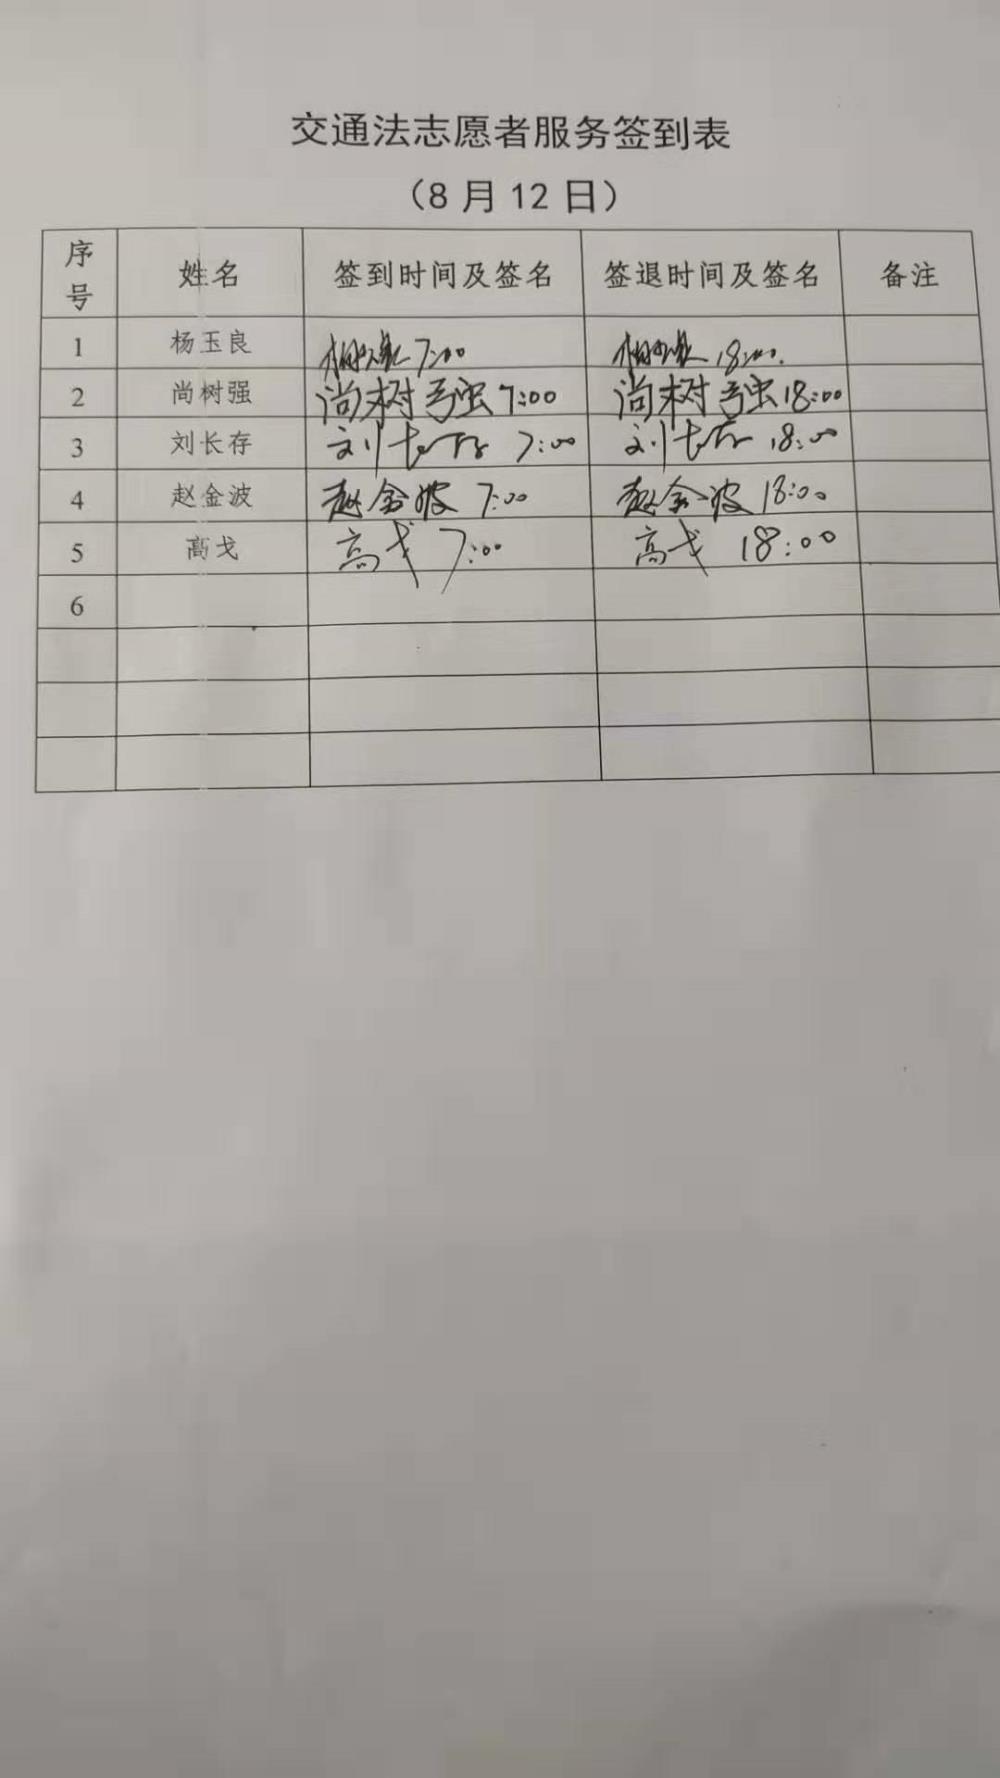 交通法志愿者服务签到表
（8 月 12 日）
序号 姓名 签到时间及签名 签退时间及签名 备注
1 杨玉良 7:00 18:00.
2 尚树强 尚树强 7:00 尚树强 18:00
3 刘长存 刘长存 7:00 刘长存 18:00
4 赵金波 赵金波 7:00 赵金波 18:00
5 高戈 高戈 7:00 高戈 18:00
6